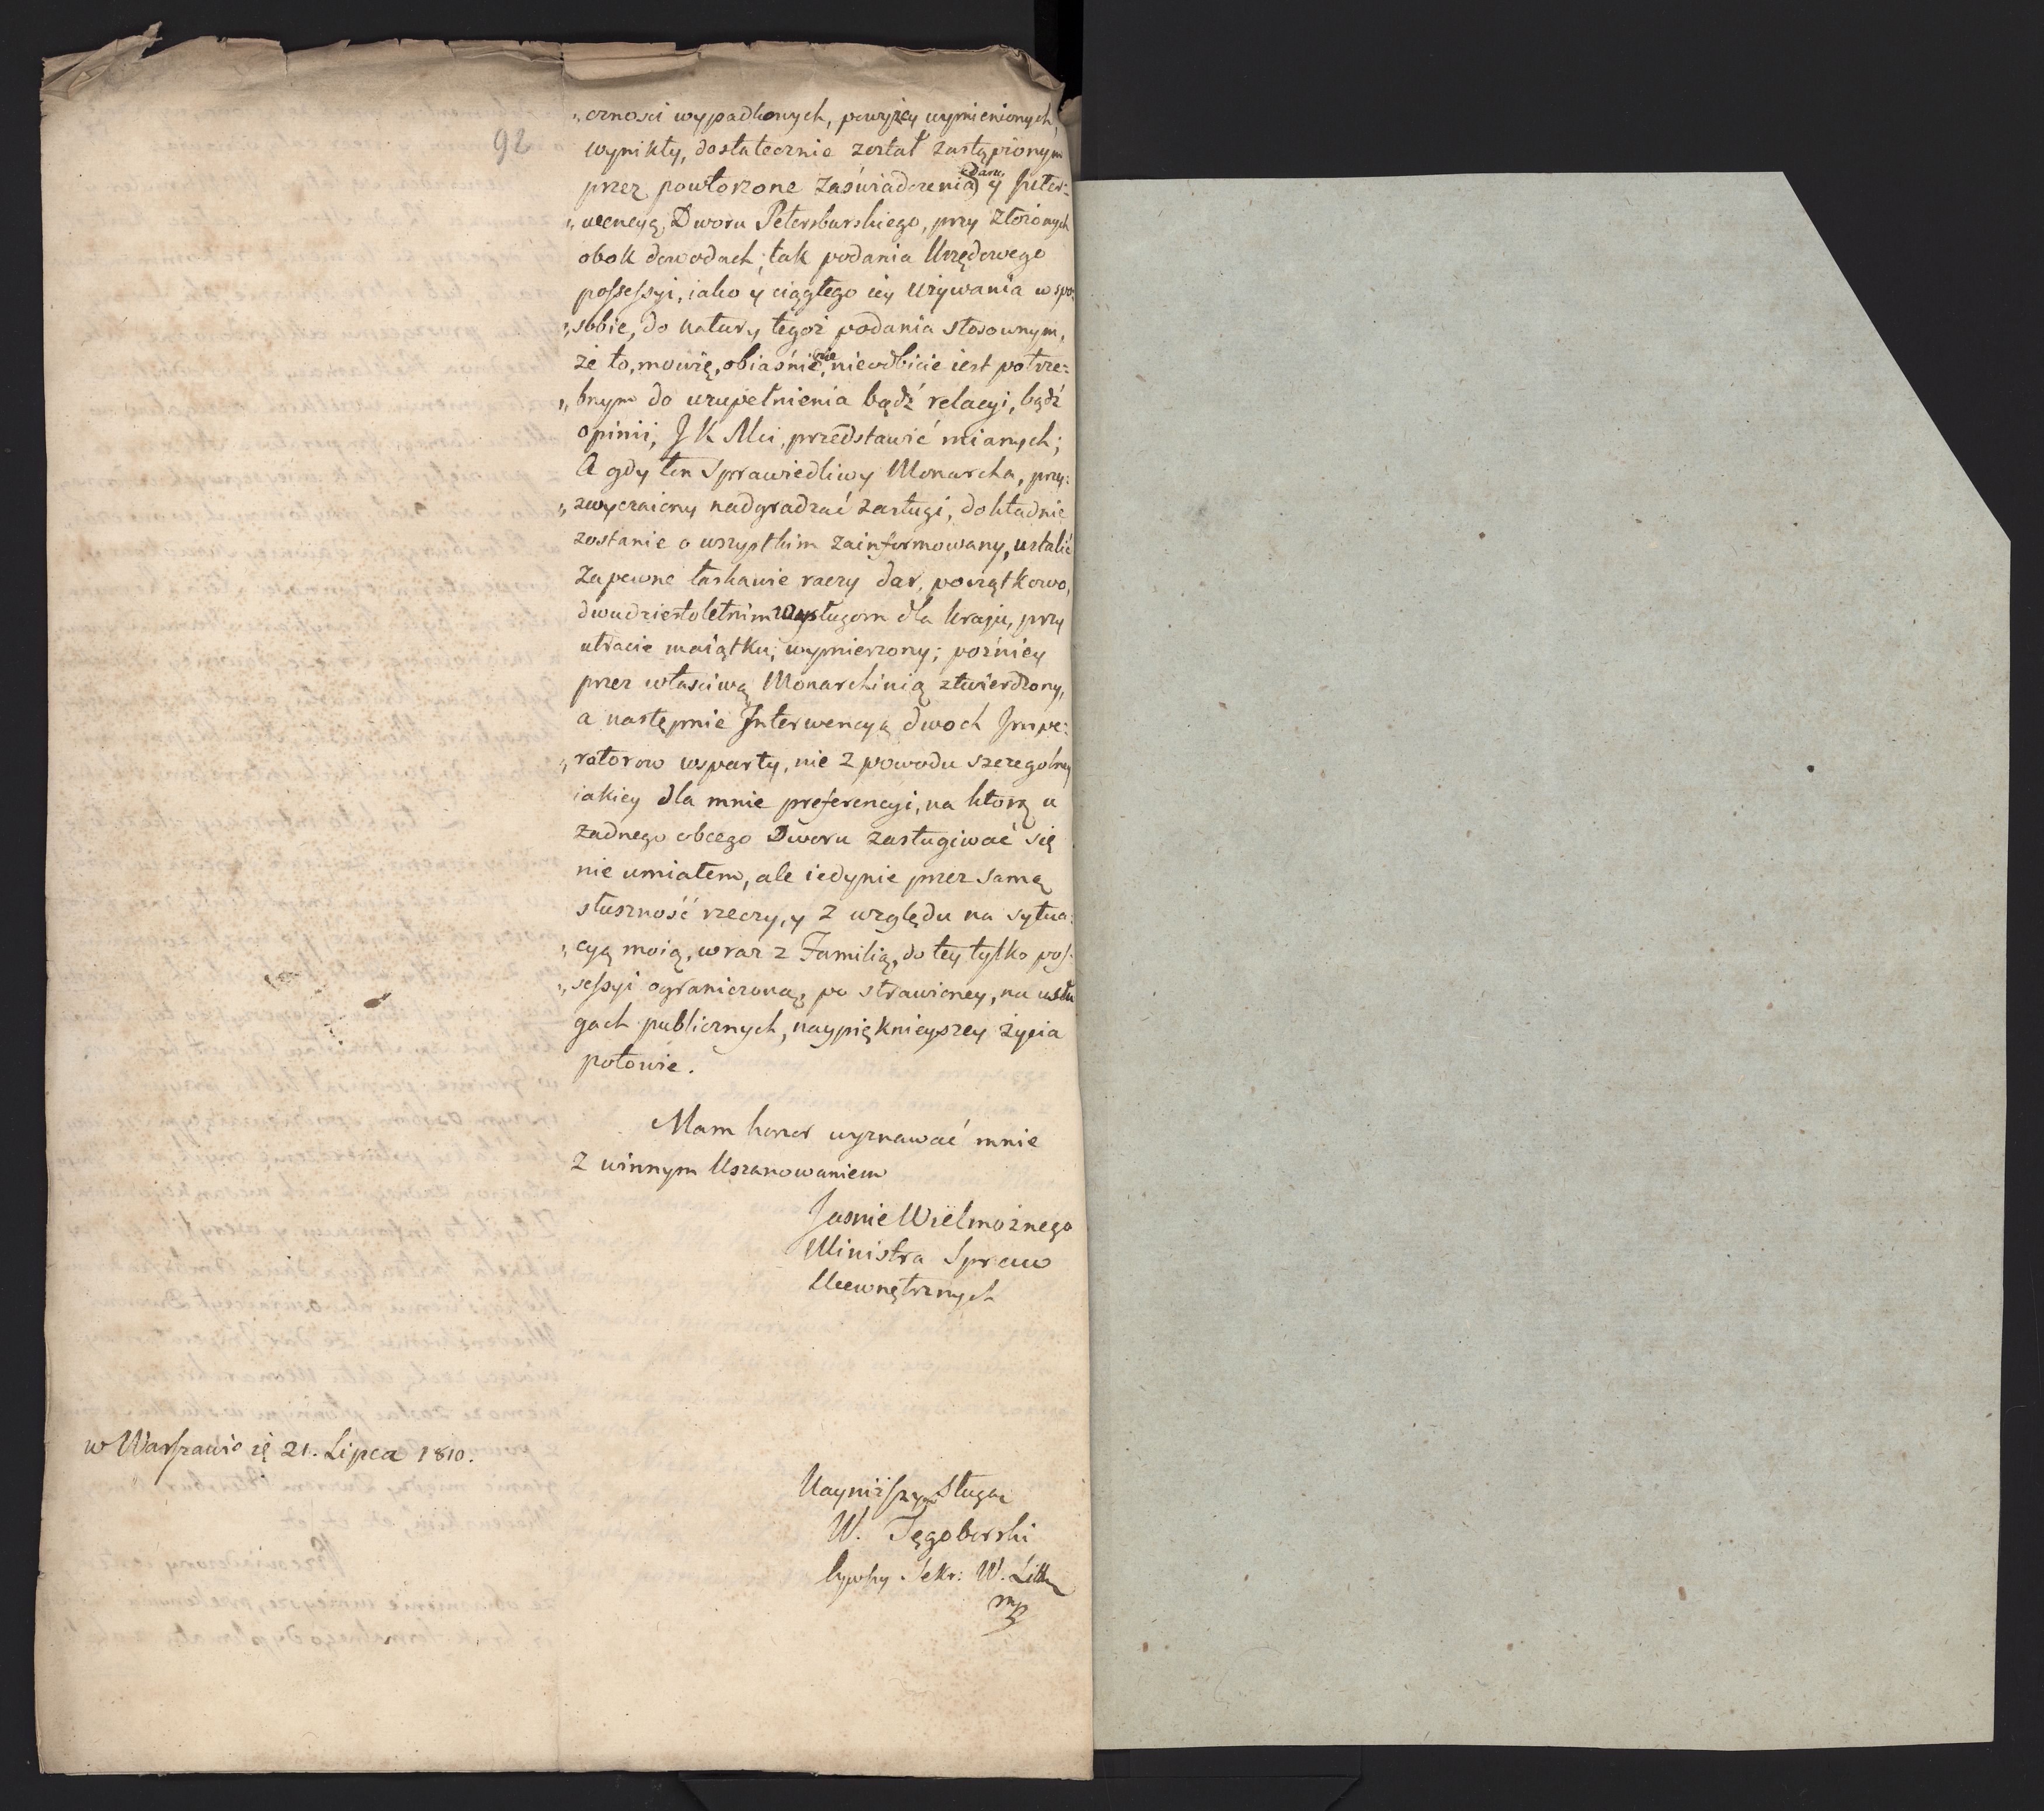 92
„cznosci wypadkowych, powyżey wymienionych,
wynikły, dostatecznie został zastąpionym
przez powtorzone zaświadczenia daru, y Inter:
„wencyą, Dworu Petersburskiego, przy złożonych
obok dowodach, tak podania Urzędowego
possessyi, iako y ciągłego iey używania w spo:
„sobie, do natury tegoż podania stosownym,
że to, mowię, obiaśnienie, nieodbicie iest potrze:
„bnym do uzupełnienia bądź relacyi, bądź
opinii, J K Mci, przedstawić mianych;
A gdy ten Sprawiedliwy Monarcha, przy:
„zwyczaiony nadgradzać zasługi, dokładnie
zostanie o wszystkim zainformowany, ustalić
zapewne łaskawie raczy dar, początkowo,
dwudziestoletnim wysługom dla kraju, przy
utracie maiątku, wymierzony; poźniey
przez właściwą Monarchinią ztwierdzony,
a następnie Interwencyą dwoch Impe:
„ratorow wsparty, nie z powodu szczegolney
iakiey dla mnie preferencyi, na ktorą u
żadnego obcego Dworu zasługiwać się
nie umiałem, ale iedynie przez samą
słuszność rzeczy, y z względu na sytua:
„cyą moią, wraz z Familią, do tey tylko pos:
„sessyi ograniczoną, po strawioney, na usłu
gach publicznych, naypięknieyszey życia
połowie.
Mam honor wyznawać mnie
z winnym Uszanowaniem
Jasnie Wielmożnego
Ministra Spraw
Wewnętrznych
w Warszawie 21. Lipca 1810.
Nayniższym Sługą
W. Tęgoborski
bywszy Sekr: W. Litt
mp